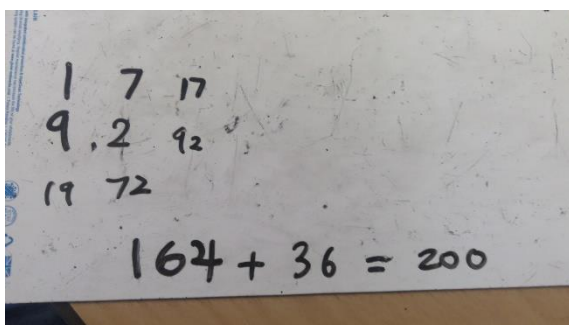 1 7 17
9.2 92
19 72
164 + 36 = 200